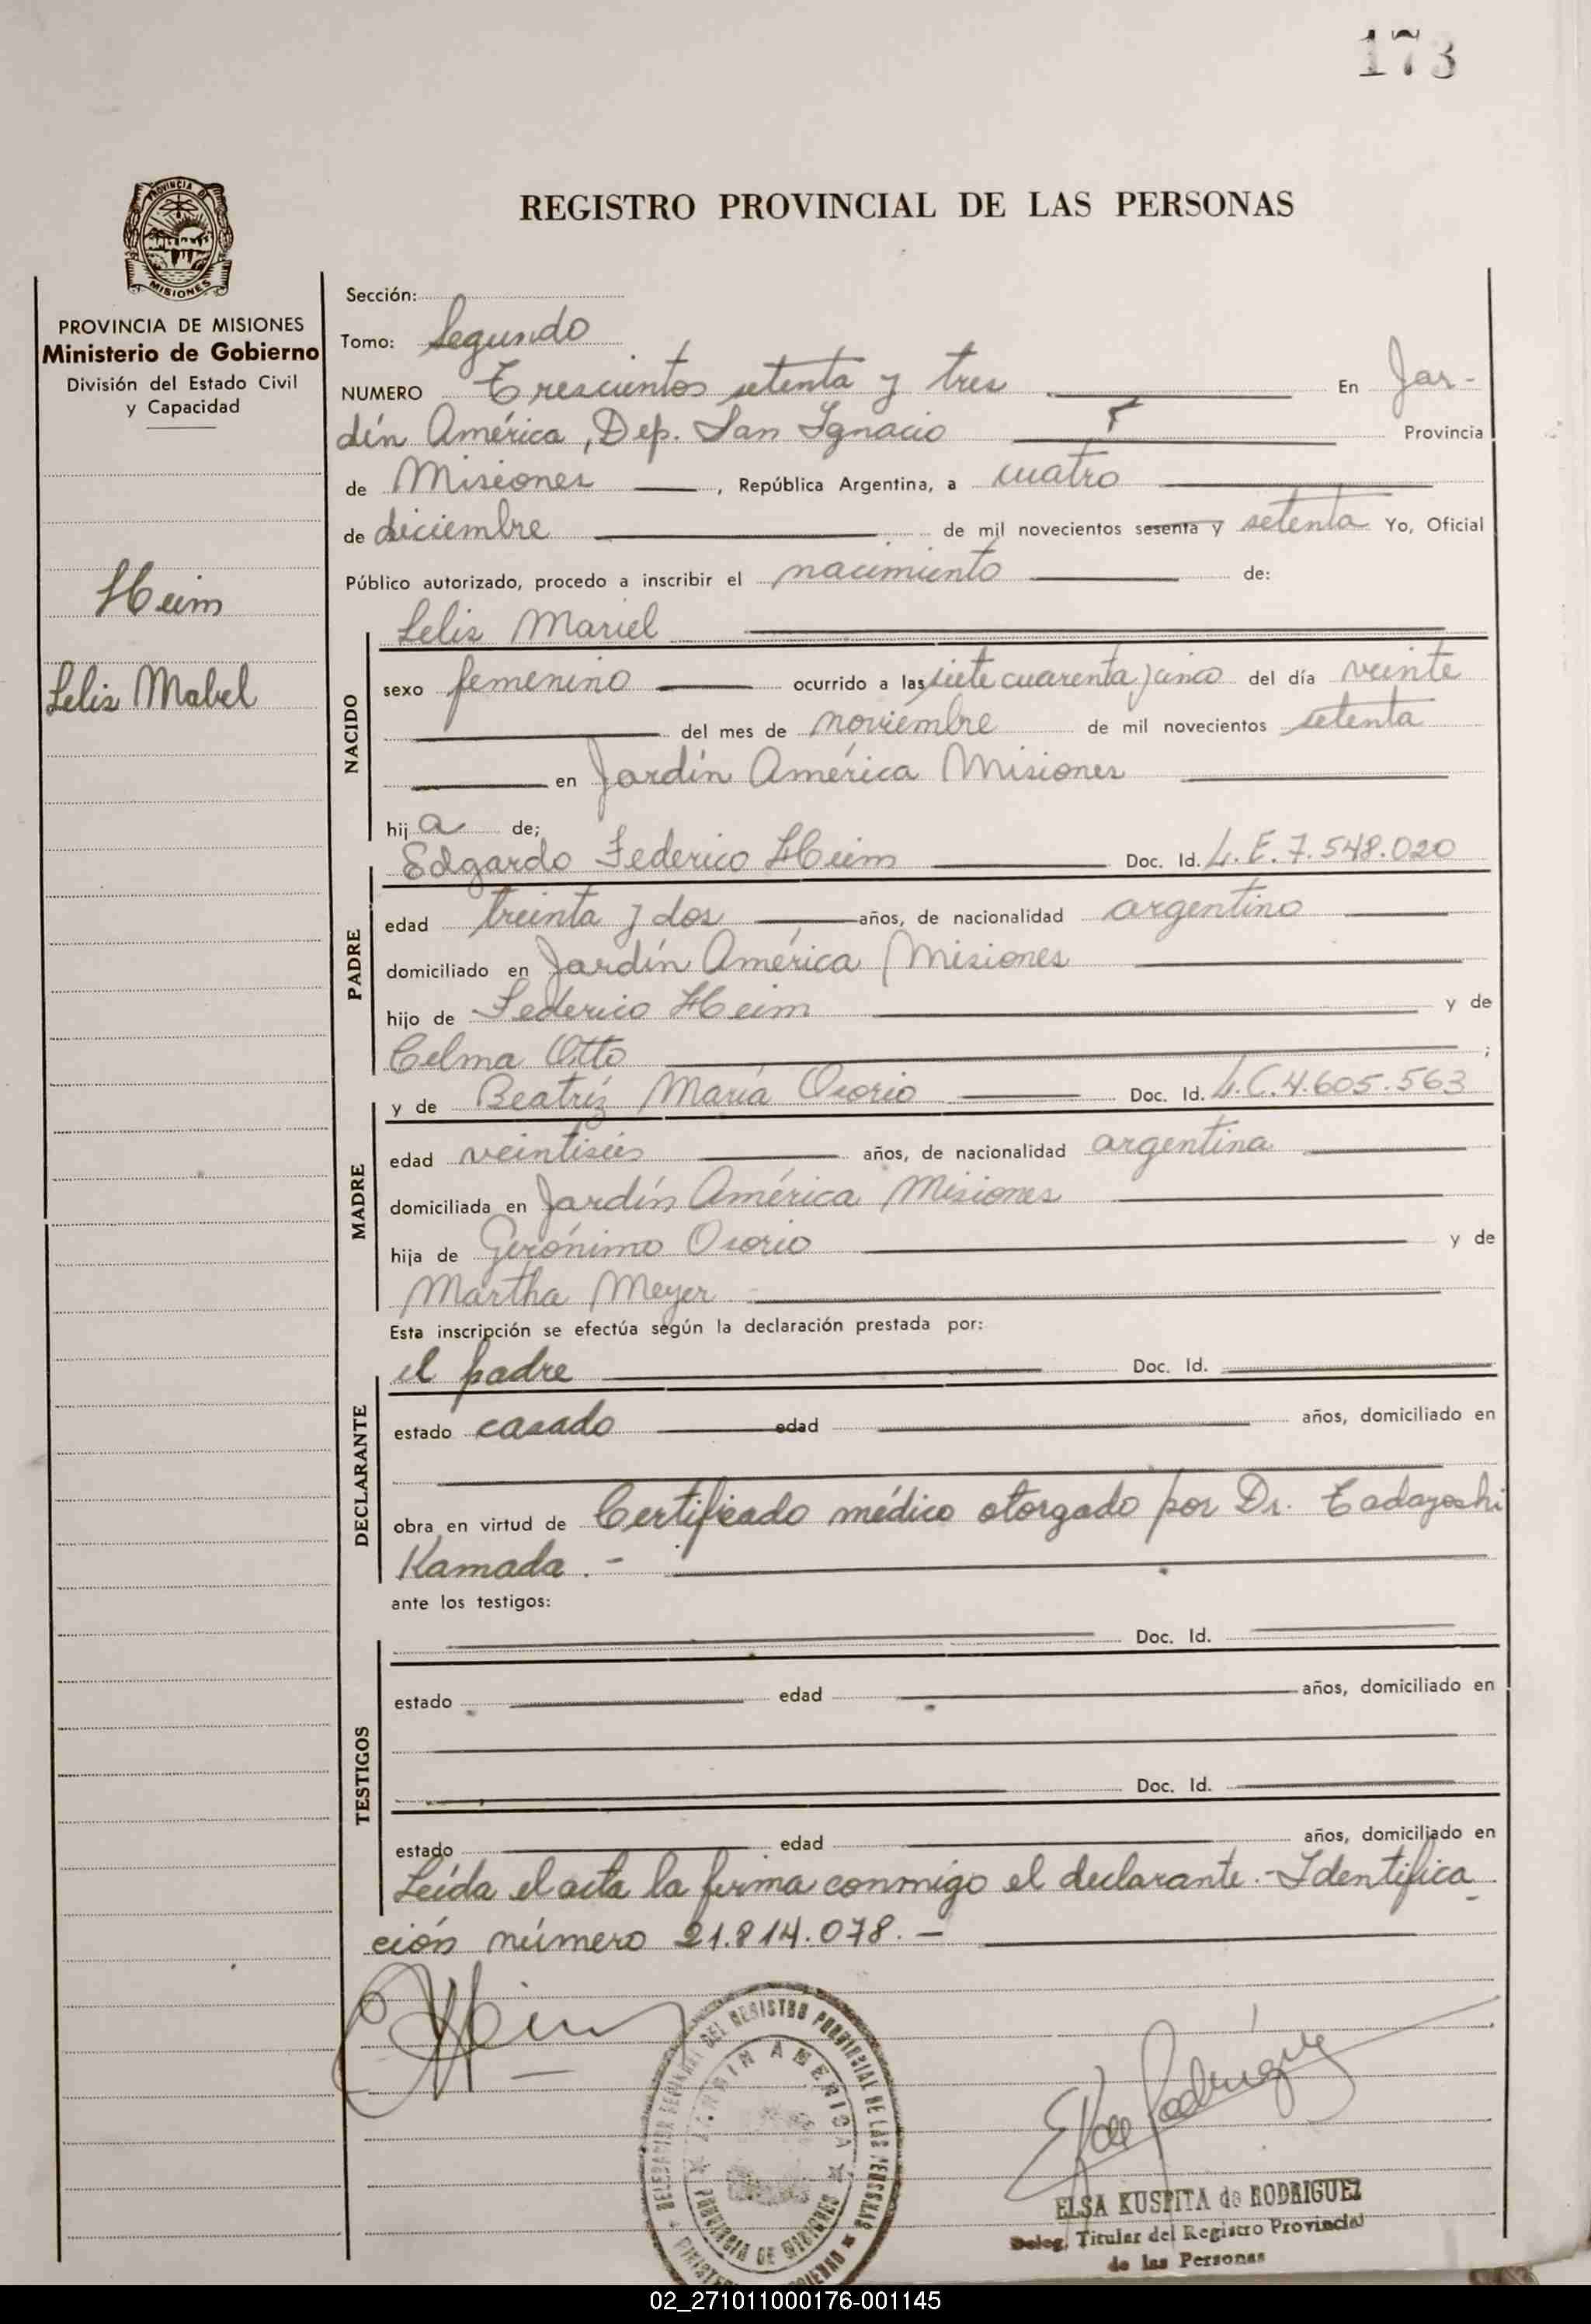 173
REGISTRO PROVINCIAL DE LAS PERSONAS
PROVINCIA DE MISIONES
PROVINCIA DE MISIONES
Ministerio de Gobierno
División del Estado Civil
y Capacidad
Heim
Lelis Mabel
Sección:
Tomo: Segundo
NUMERO Trescientos setenta y tres En Jar-
dín América, Dep. San Ignacio Provincia
de Misiones, República Argentina, a cuatro
de diciembre de mil novecientos sesenta y setenta Yo, Oficial
Público autorizado, procedo a inscribir el nacimiento de:
Lelis Mariel
NACIDO
sexo femenino ocurrido a las siete cuarenta y cinco del día veinte
del mes de noviembre de mil novecientos setenta
en Jardín América Misiones
hija de;
Edgardo Federico Heim Doc. Id. L.E. 7.548.020
PADRE
edad treinta y dos años, de nacionalidad argentino
domiciliado en Jardín América Misiones
hijo de Federico Heim y de
Celma Otto ;
y de Beatríz María Osorio Doc. Id. L.C. 4.605.563
MADRE
edad veintiseis años, de nacionalidad argentina
domiciliada en Jardín América Misiones
hija de Gerónimo Osorio y de
Martha Meyer
Esta inscripción se efectúa según la declaración prestada por:
el padre Doc. Id.
DECLARANTE
estado casado edad años, domiciliado en
obra en virtud de Certificado médico otorgado por Dr. Tadayoshi
Kamada.-
ante los testigos:
Doc. Id.
TESTIGOS
estado edad años, domiciliado en
Doc. Id.
estado edad años, domiciliado en
Leída el acta la firma conmigo el declarante.- Identifica
ción número 21.814.078.-
Heim
DEL REGISTRO PROVINCIAL DE LAS PERSONAS
JARDIN AMERICA
PROVINCIA DE MISIONES
Elsa Rodríguez
ELSA KUSPITA de RODRIGUEZ
Deleg. Titular del Registro Provincial
de las Personas
02_271011000176-001145